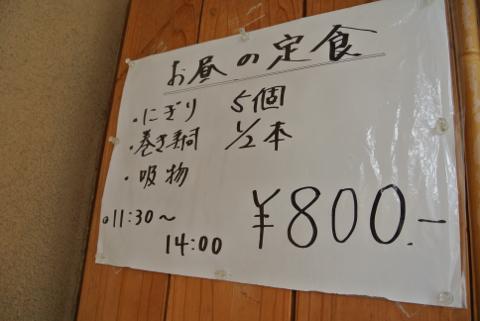 お昼の定食
・にぎり 5個
・巻き寿司 1/2本
・吸物
・11:30～
14:00
¥800.-